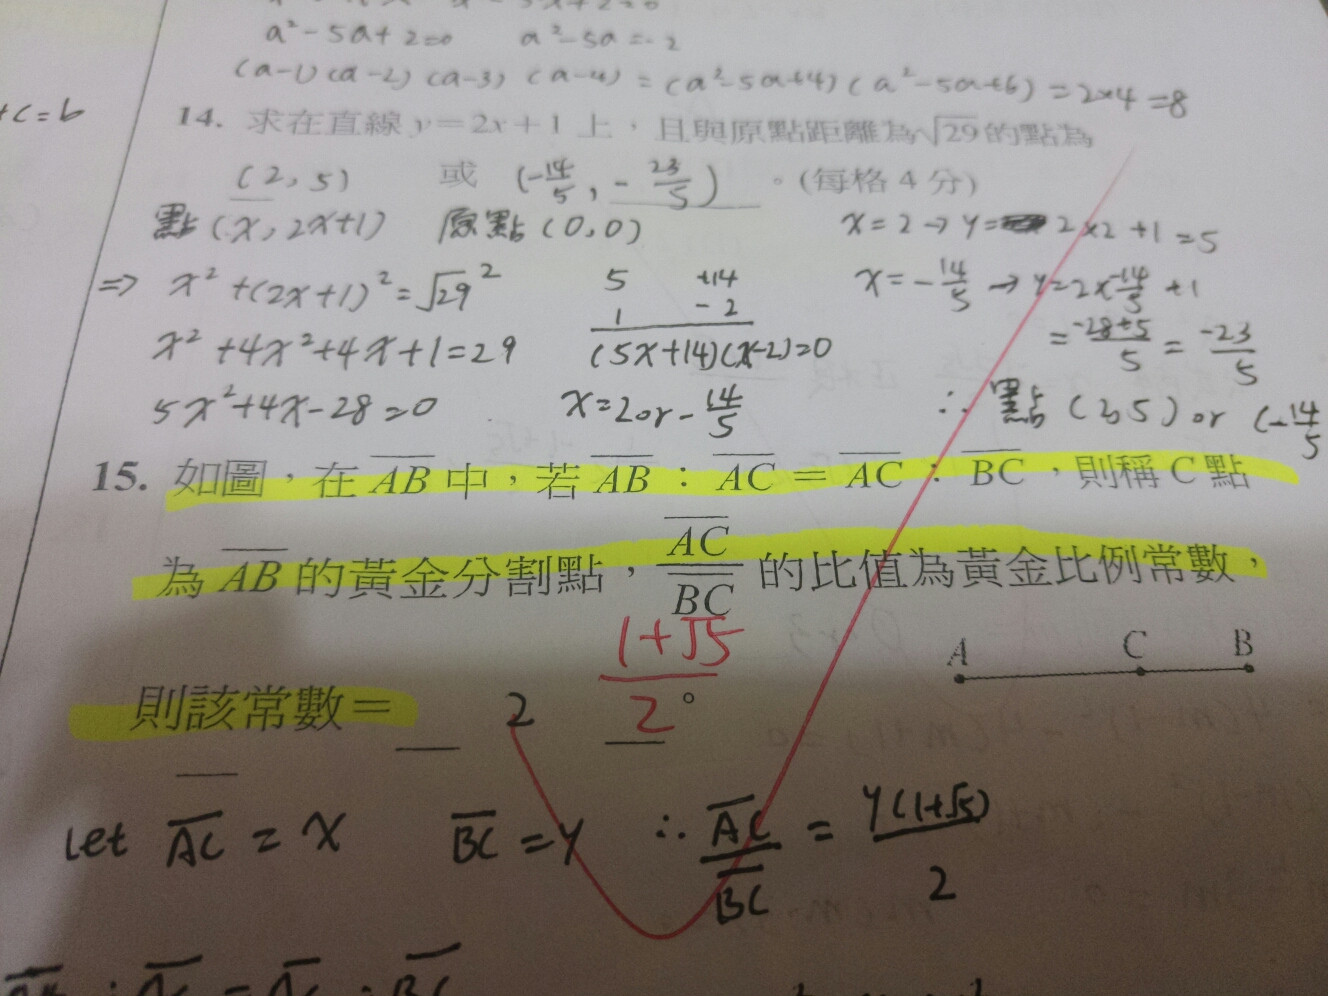 a²-5a+2=0 a²-5a=-2
(a-1)(a-2)(a-3)(a-4)=(a²-5a+4)(a²-5a+6)=2×4=8
+c=b
14. 求在直線 y=2x+1 上，且與原點距離為√29的點為
(2,5) 或 (-14/5, -23/5)。(每格4分)
點(x,2x+1) 原點(0,0) x=2→y=2×2+1=5
⇒ x²+(2x+1)²=√29² 5 +14 x=-14/5→y=2×-14/5+1
1 -2
x²+4x²+4x+1=29 (5x+14)(x-2)=0 =-28+5/5=-23/5
5x²+4x-28=0 x=2or-14/5 ∴點(2,5)or(-14/5
15. 如圖，在AB中，若AB：AC=AC：BC，則稱C點
為AB的黃金分割點，AC/BC的比值為黃金比例常數，
A C B
則該常數= 2 1+√5/2。
Let AC=x BC=y ∴AC/BC=y(1+√5)/2
AB:AC=AC:BC